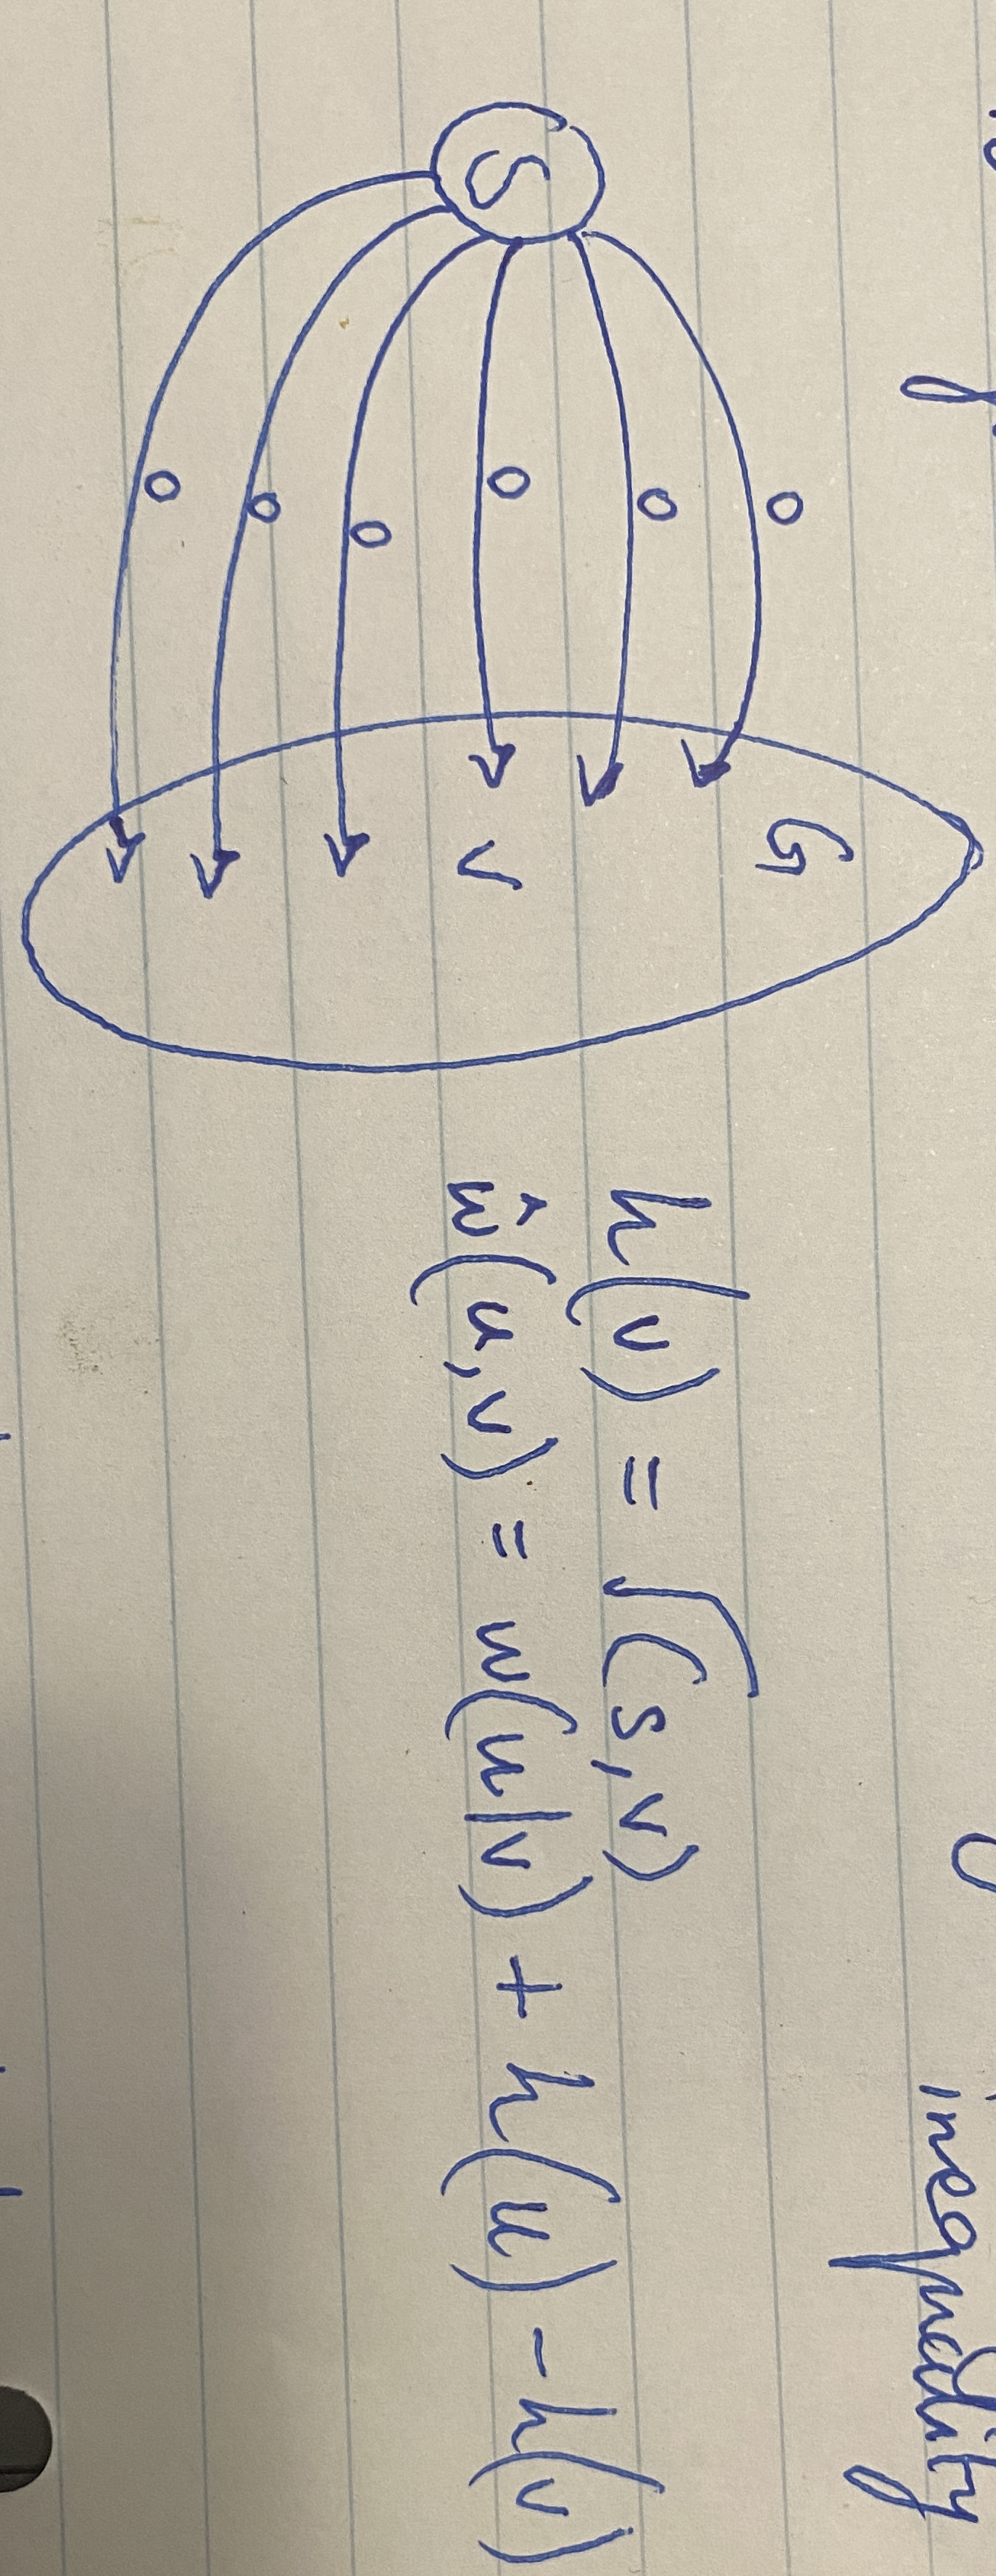 inequality
S
0 0 0 0 0 0
G
v
h(v) = δ(s,v)
ŵ(u,v) = w(u,v) + h(u) - h(v)